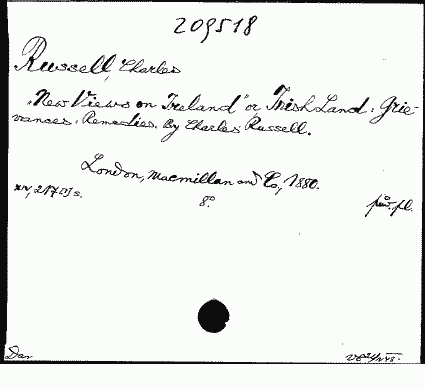 209518
Russell, Charles
"New Views on Ireland" or Irish Land: Grie-
vances: Remedies. By Charles Russell.
London, Macmillan and Co., 1880.
xv, 217 [1] s. 8°
Dar